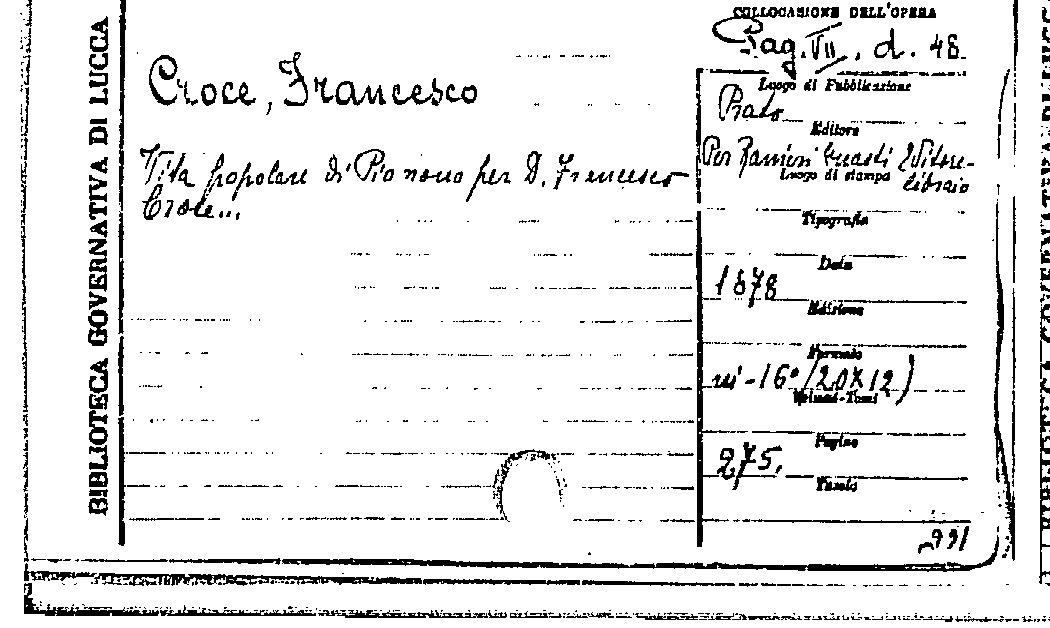 BIBLIOTECA GOVERNATIVA DI LUCCA
COLLOCASIONE DELL'OPERA
Pag. VII. d. 48.
Croce, Francesco
Luogo di Pubblicazione
Prato
Editore
Per Ranieri Guasti Editore-
libraio
Vita popolare di Pio nono per D. Francesco
Croce...
Luogo di stampa
Tipografia
Data
1878
Edizione
Formato
in-16° (20x12)
Volumi-Tomi
Pagine
275.
Tavole